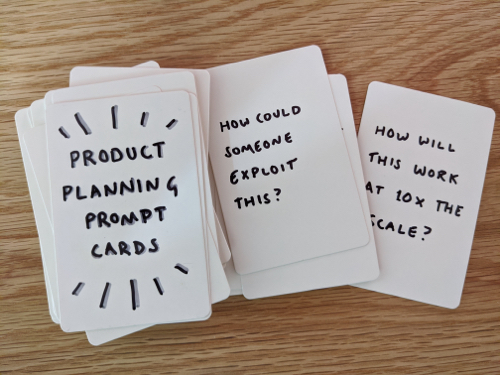 PRODUCT
PLANNING
PROMPT
CARDS
HOW COULD
SOMEONE
EXPLOIT
THIS?
HOW WILL
THIS WORK
AT 10X THE
SCALE?